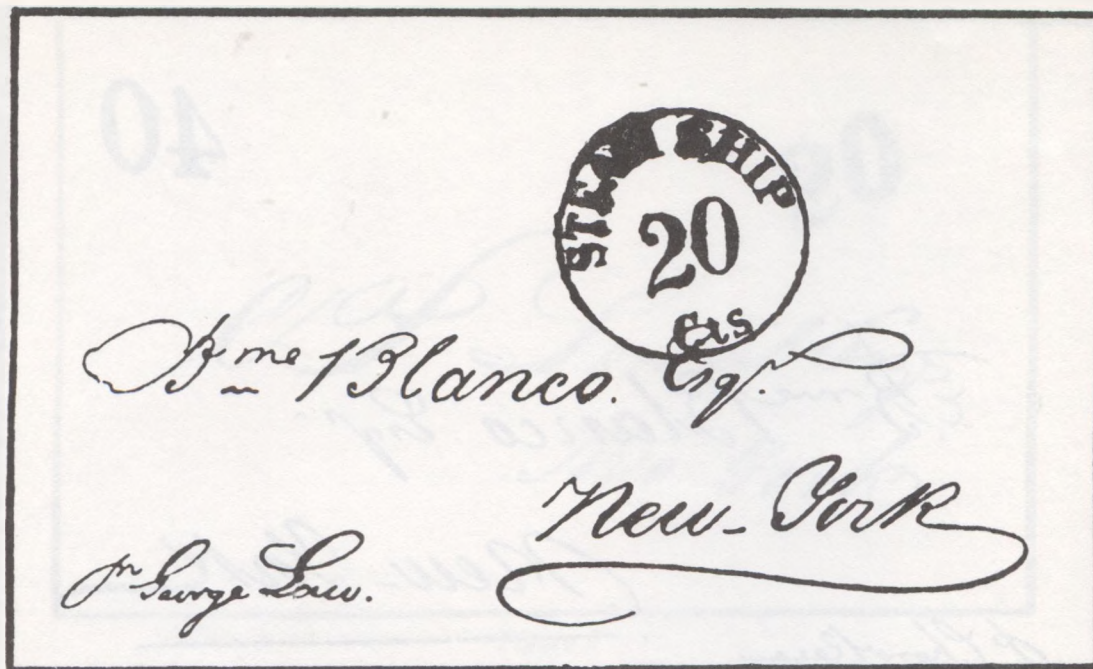 STEAM SHIP
20
Cts
Bme Blanco. Esqr.
New-York
pr George Law.